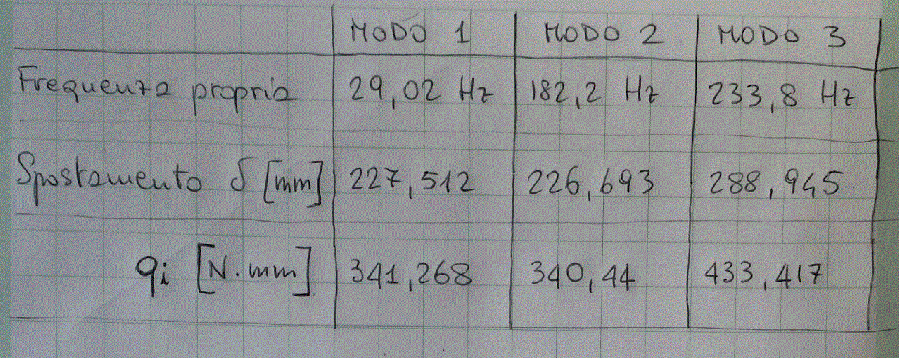 MODO 1 MODO 2 MODO 3
Frequenza propria 29,02 Hz 182,2 Hz 233,8 Hz
Spostamento δ [mm] 227,512 226,693 288,945
qi [N·mm] 341,268 340,44 433,417